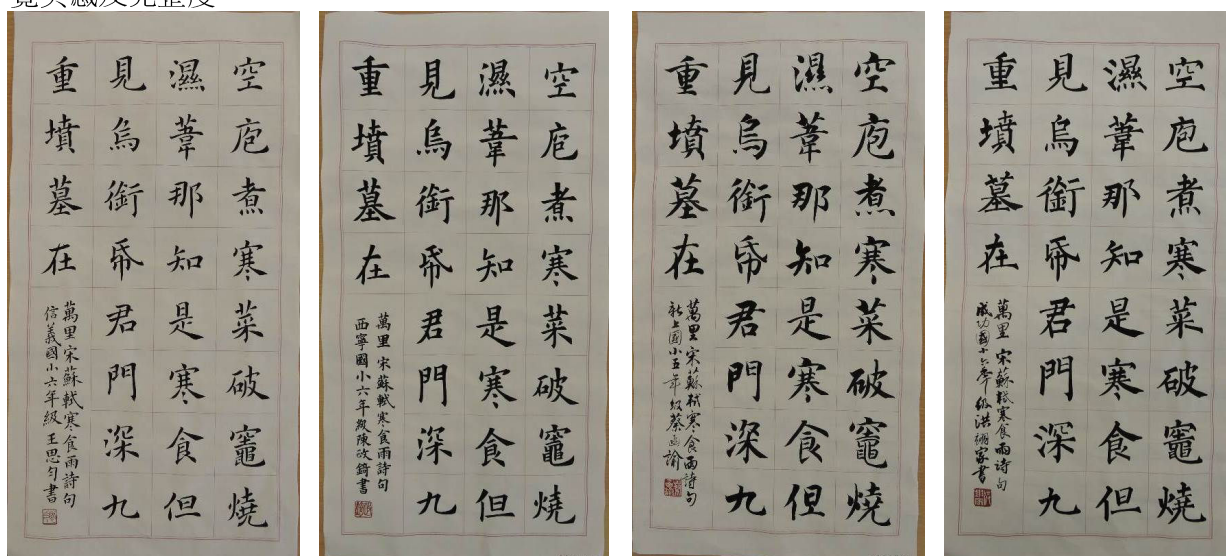 空庖煮寒菜破竈燒
濕葦那知是寒食但
見烏銜帋君門深九
重墳墓在
萬里宋蘇軾寒食雨詩句
信義國小六年級王思勻書
空庖煮寒菜破竈燒
濕葦那知是寒食但
見烏銜帋君門深九
重墳墓在
萬里宋蘇軾寒食雨詩句
西寧國小六年級陳書
空庖煮寒菜破竈燒
濕葦那知是寒食但
見烏銜帋君門深九
重墳墓在
萬里宋蘇軾寒食雨詩句
新上國小五年級蔡諭
空庖煮寒菜破竈燒
濕葦那知是寒食但
見烏銜帋君門深九
重墳墓在
萬里宋蘇軾寒食雨詩句
成功國小六年級洪家書